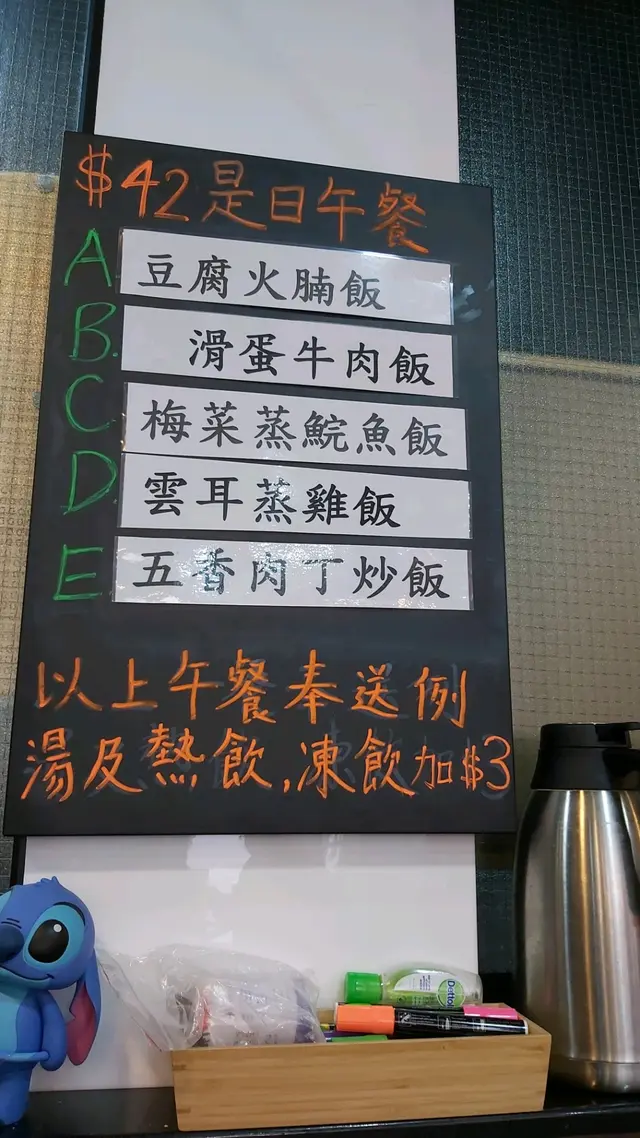 $42是日午餐
A. 豆腐火腩飯
B. 滑蛋牛肉飯
C. 梅菜蒸鯇魚飯
D. 雲耳蒸雞飯
E 五香肉丁炒飯
以上午餐奉送例
湯及熱飲,凍飲加$3
Dettol